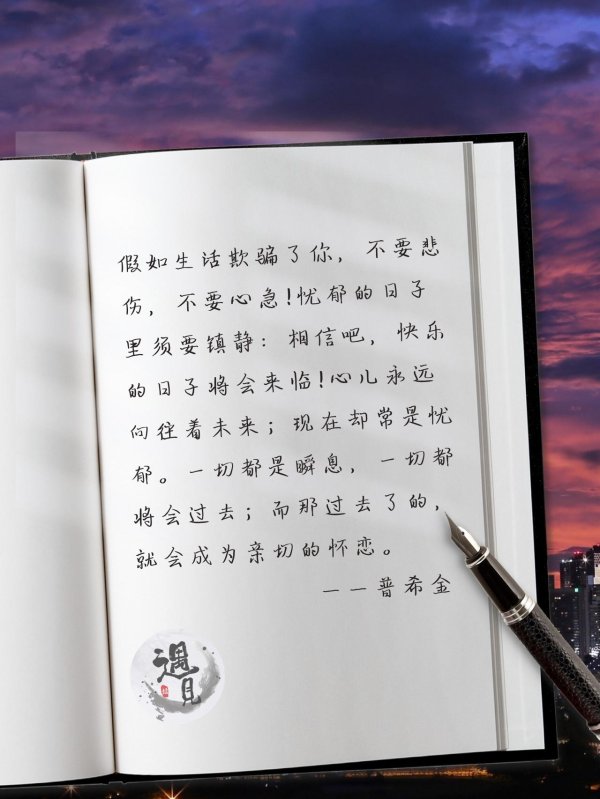 假如生活欺骗了你，不要悲
伤，不要心急!忧郁的日子
里须要镇静：相信吧，快乐
的日子将会来临!心儿永远
向往着未来；现在却常是忧
郁。一切都是瞬息，一切都
将会过去；而那过去了的，
就会成为亲切的怀恋。
——普希金
遇見